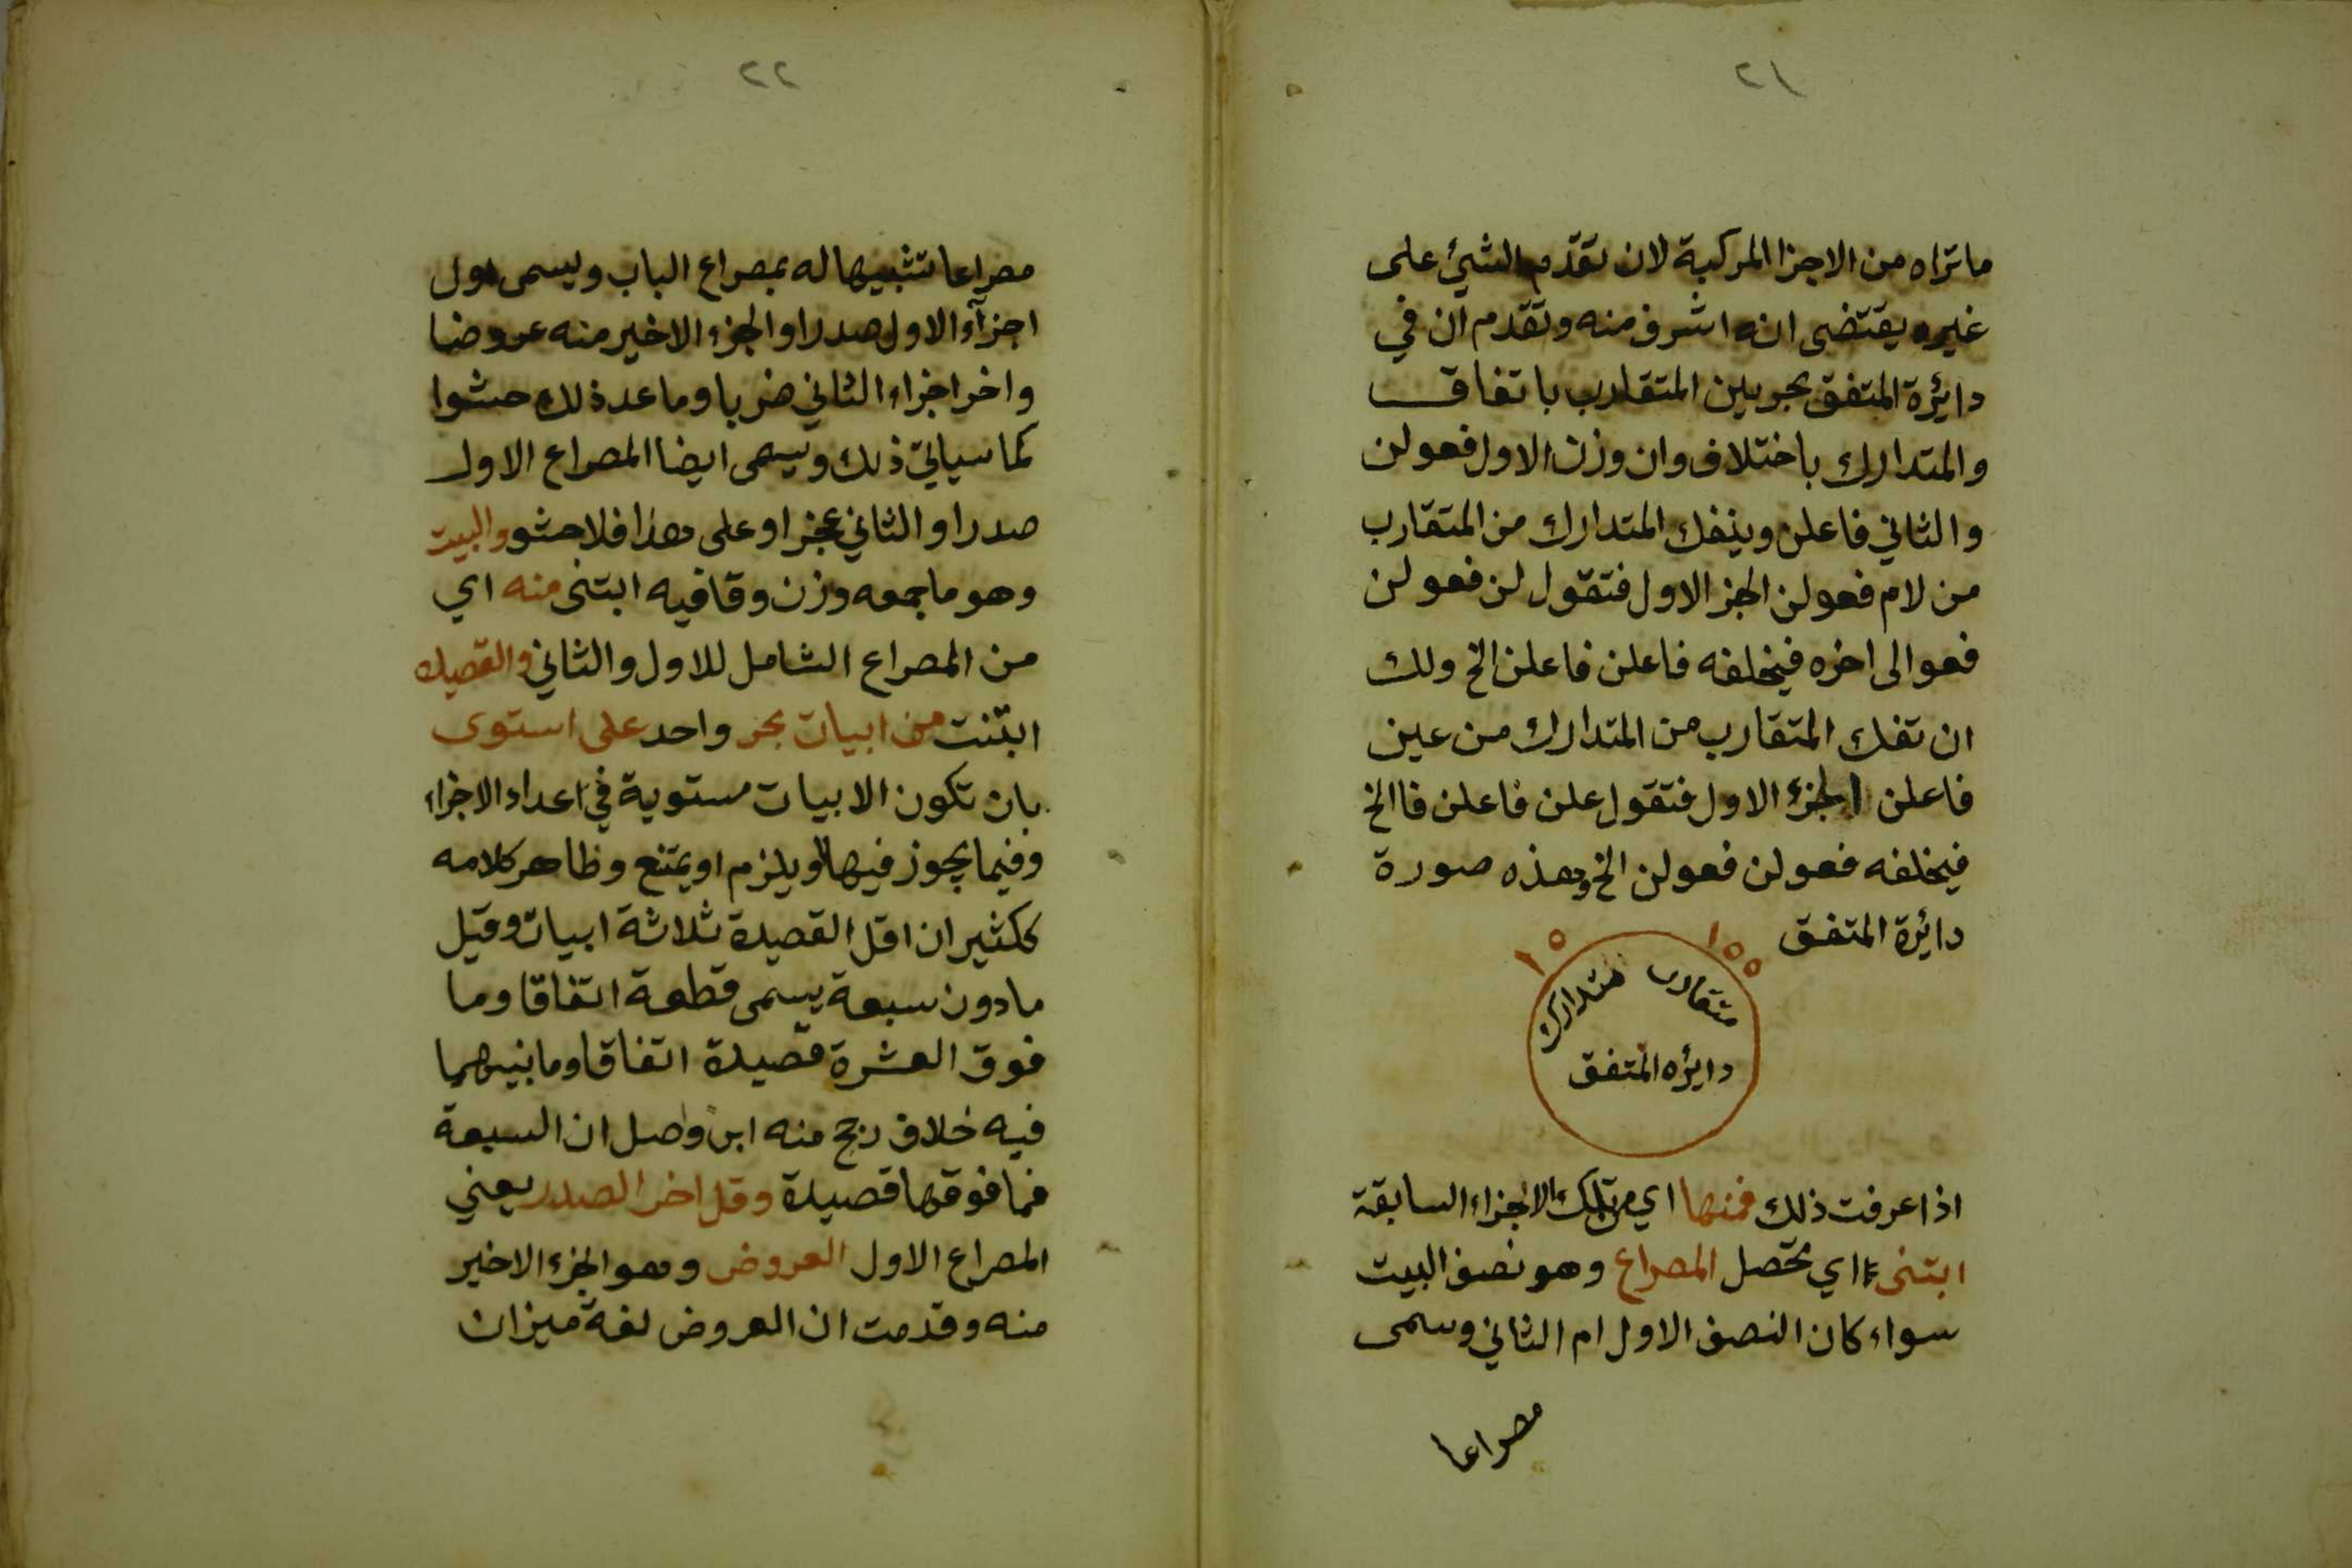 ٢١
ماتراه من الاجزا المركبة لان تقدم الشئ على
غيره يقتضى انه اشرف منه وتقدم ان في
دايرة المتفق بحرين المتقارب باتفاق
والمتدارك باختلاف وان وزن الاول فعولن
والثاني فاعلن وينفك المتدارك من المتقارب
من لام فعولن الجز الاول فتقول لن فعولن
فعوالى اخره فيخلفه فاعلن فاعلن الخ ولك
ان تفك المتقارب من المتدارك من عين
فاعلن الجزء الاول فتقول علن فاعلن فا الخ
فيخلفه فعولن فعولن الخ وهذه صورة
دائرة المتفق
متقارب متدارك
دايره المتفق
اذا عرفت ذلك فمنها اي من تلك الاجزاء السابقة
ابتنى اي تحصل المصراع وهو نصف البيت
سواء كان النصف الاول ام الثاني وسمى
مصراعا
٢٢
مصراعا تشبيها له بمصراع الباب ويسمى اول
اجزآء الاول صدرا والجزء الاخير منه عروضا
واخر اجزاء الثاني ضربا وما عدذلك حشوا
كما سياتي ذلك ويسمى ايضا المصراع الاول
صدرا والثاني عجزا وعلى هذا فلا حشو والبيت
وهو ما جمعه وزن وقافيه ابتنى منه اي
من المصراع الشامل للاول والثاني والقصيده
ابتنت من ابيات بحر واحد على استوى
بان تكون الابيات مستوية في اعداد الاجزاء
وفيما يجوز فيها او يلزم او يمتنع وظاهر كلامه
ككثير ان اقل القصيدة ثلاثة ابيات وقيل
مادون سبعة يسمى قطعة اتفاقا وما
فوق العشرة قصيدة اتفاقا وما بينهما
فيه خلاف رجح منه ابن واصل ان السبعة
فما فوقها قصيدة وقل اخر الصدر يعني
المصراع الاول العروض وهو الجزء الاخير
منه وقدمت ان العروض لغة ميزان